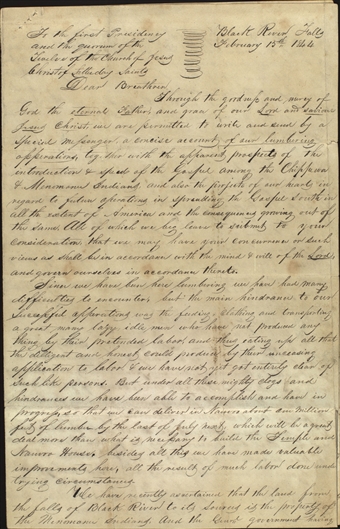 Black River Falls
February 15th 1844
To the first Presidency
and the quorum of the
Twelve of the Church of Jesus
Christ of Latter day Saints
Dear Breatheren
Through the goodness and mercy of
God the eternal Father, and grace of our Lord and Saviour
Jesus Christ we are permitted to write and send by a
Special messenger a concise account of our lumbering
opperations, together with the apparent prospects of the
introduction & spred of the Gospel among the Chippawa
& Menomanee Indians, and also the projects of our hearts in
regard to future operations in spreading the Gospel South in
all the extent of America and the consequences growing out of
the same All of which we beg leave to submit to your
consideration that we may have your concurence or such
views as shall be in accordance with the mind & will of the Lord,
and govern ourselves in accordance thereto.
Since we have been here lumbering we have had many
difficulties to encounter, but the main hindrance to our
successful opperations was the feeding, clothing and transporting
a great many lazy, idle men who have not produced any
thing by their pretended labor and thus eating up all that
the dilligent and honest could produce by their unceasing
application to labor & we have not yet got entirely clear of
such like persons. But under all these mighty clogs and
hindrances we have been able to accomplish and have in
progress, so that we can deliver in Nauvoo about one million
feet of lumber by the last of July next, which will be a great
deal more than what is necessary to build the Temple and
Nauvoo House, besides all this we have made valuable
improvements here, all the result of much labor done under
trying circumstances.
We have recently ascertained that the land from
the falls of Black River to its sources is the property of
the Menomanee Indians, and the Genl government having